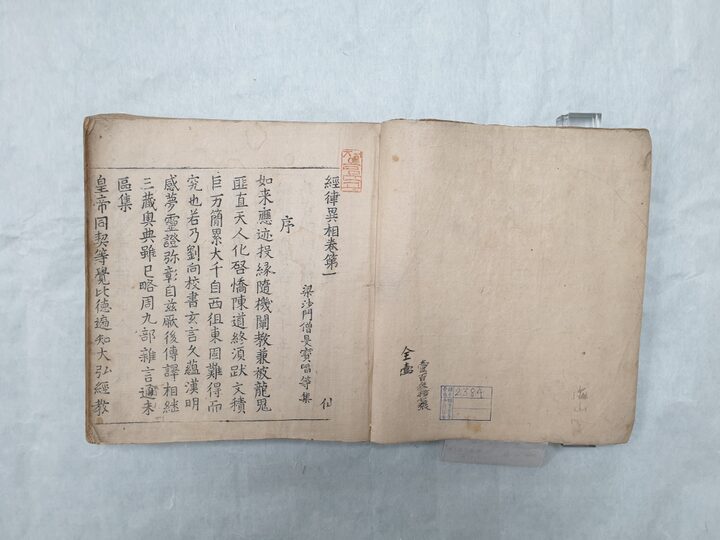 經律異相卷第一
梁沙門僧旻寶唱等集
仙
序
如來應迹投緣隨機闡教兼被龍鬼
匪直天人化啓憍陳道終須跋文積
巨万簡累大千自西徂東固難得而
究也若乃劉向校書玄言久蘊漢明
感夢靈證弥彰自茲厥後傳譯相継
三藏奧典雖已略周九部雜言通未
區集
皇帝同契等覺比德遍知大弘經教
2584